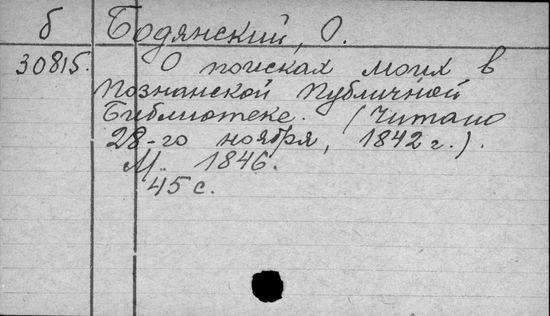 б Бодянский, О.
30815. О поисках моих в
Познанской Публичной
Библиотеке. (Читано
28-го ноября, 1842 г.).
М. 1846.
45 с.